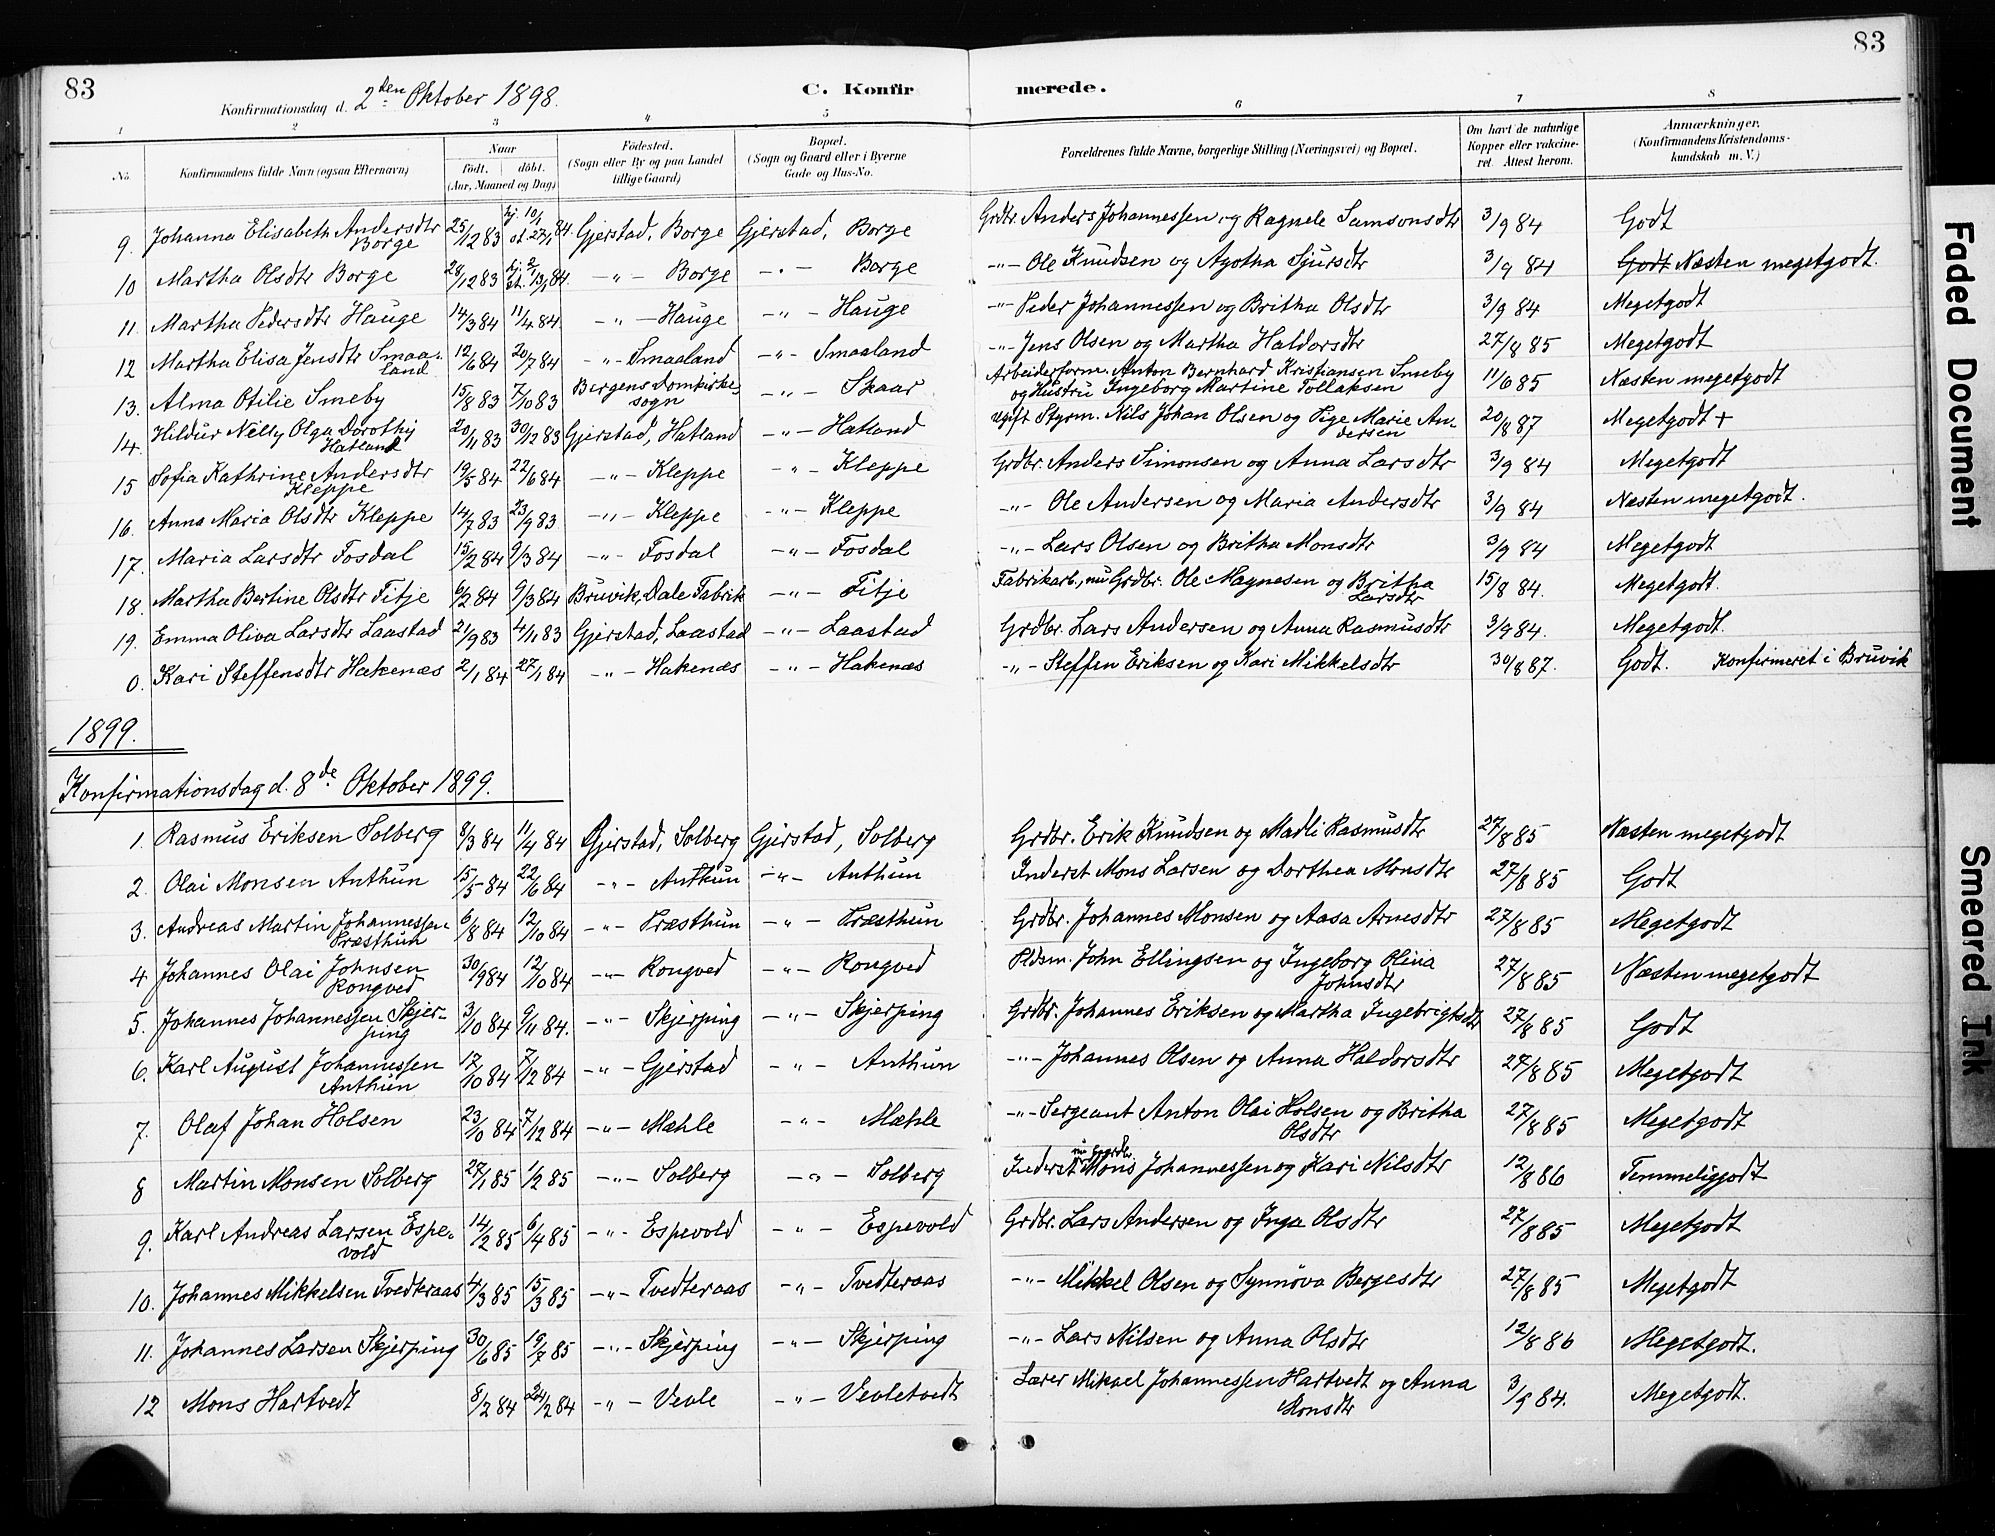 83
83
Konfirmationsdag d. 2den Oktober 1898.
C. Konfir
merede.
1 2 3 4 5 6 7 8
No.
Konfirmandens fulde Navn (ogsaa Efternavn)
Naar
født. döbt.
(Aar, Maaned og Dag)
Födested.
(Sogn eller By og paa Landet
tillige Gaard)
Bopæl.
(Sogn og Gaard eller i Byerne
Gade og Hus-No.
Forældrenes fulde Navne, borgerlige Stilling (Næringsvei) og Bopæl.
Om havt de naturlige
Kopper eller vakcine-
ret. Attest herom.
Anmærkninger.
(Konfirmandens Kristendoms-
kundskab m. V.)
9. Johanna Elisabeth Andersdtr Borge 25/12 83 hj. 10/1 st. 27/1 84. Gjerstad, Borge Gjerstad, Borge Grdbr. Anders Johannessen og Ragnele Samsonsdtr 3/9 84 Godt
10 Martha Olsdtr Borge 28/12 83 hj. 2/1 st. 13/1 84. -"- Borge -"- Borge -"- Ole Knudsen og Agotha Sjursdtr 3/9 84 Godt Næsten megetgodt.
11. Martha Pedersdtr Hauge 14/3 84 11/4 84. -"- Hauge -"- Hauge -"- Peder Johannessen og Britha Olsdtr 3/9 84 Megetgodt
12 Martha Elisa Jensdtr Smaa-land 12/6 84 20/7 84 -"- Smaaland -"- Smaaland -"- Jens Olsen og Martha Haldorsdtr 27/8 85 Megetgodt
13. Alma Otilie Smeby 15/8 83 7/10 83 Bergens Domkirke-sogn -"- Skaar Arbeiderform. Anton Bernhard Kristiansen Smeby og Hustru Ingeborg Martine Tollaksen 11/6 85 Næsten megetgodt
14. Hildur Nelly Olga Dorothy Hatland 20/11 83 30/12 83 Gjerstad, Hatland -"- Hatland Ugift Styrm. Nils Johan Olsen og Pige Marie An-dersen 20/8 87 Megetgodt +
15 Sofia Kathrine Andersdtr Kleppe 19/5 84 22/6 84 -"- Kleppe -"- Kleppe Grdbr. Anders Simonsen og Anna Larsdtr 3/9 84 Megetgodt
16. Anna Maria Olsdtr Kleppe 14/7 83 23/9 83 -"- Kleppe -"- Kleppe -"- Ole Andersen og Maria Andersdtr 3/9 84 Næsten megetgodt.
17. Maria Larsdtr Fosdal 15/2 84 9/3 84 -"- Fosdal -"- Fosdal -"- Lars Olsen og Britha Monsdtr 3/9 84 Megetgodt
18. Martha Bertine Olsdtr Fitje 6/2 84 9/3 84 Bruvik, Dale Fabrik -"- Fitje Fabrikarb., nu Grdbr. Ole Magnesen og Britha Larsdtr 15/8 84. Megetgodt.
19. Emma Oliva Larsdtr Laastad 21/9 83 4/11 83 Gjerstad, Laastad -"- Laastad Grdbr. Lars Andersen og Anna Rasmusdtr 3/9 84. Megetgodt.
0. Kari Steffensdtr Hakenæs 2/1 84 27/1 84 -"- Hakenæs -"- Hakenæs -"- Steffen Eriksen og Kari Mikkelsdtr 30/8 87. Godt. Konfirmeret i Bruvik
1899.
Konfirmationsdag d. 8de Oktober 1899.
1. Rasmus Eriksen Solberg 8/3 84 11/4 84 Gjerstad, Solberg Gjerstad, Solberg Grdbr. Erik Knudsen og Madli Rasmusdtr 27/8 85 Næsten megetgodt
2. Olai Monsen Anthun 15/5 84 22/6 84 -"- Anthun -"- Anthun Inderst Mons Larsen og Dorthea Monsdtr 27/8 85 Godt
3. Andreas Martin Johannessen Præsthun 6/8 84 12/10 84 -"- Præsthun -"- Præsthun Grdbr. Johannes Monsen og Aasa Arnesdtr 27/8 85 Megetgodt
4 Johannes Olai Johnsen Rongved 30/9 84 12/10 84 -"- Rongved -"- Rongved Pldsm. John Ellingsen og Ingeborg Olina Johnsdtr 27/8 85 Næsten megetgodt
5. Johannes Johannessen Skjer-ping 3/10 84 9/11 84. -"- Skjerping -"- Skjerping Grdbr. Johannes Eriksen og Martha Ingebrigtsdtr 27/8 85 Godt
6. Karl August Johannessen Anthun 17/10 84 7/12 84 -"- Gjerstad -"- Anthun -"- Johannes Olsen og Anna Haldorsdtr 27/8 85 Megetgodt
7. Olaf Johan Holsen 23/10 84 7/12 84 -"- Mæhle -"- Mæhle -"- Sergeant Anton Olai Holsen og Britha Olsdtr 27/8 85 Megetgodt
8 Martin Monsen Solberg 27/1 85 1/2 85 -"- Solberg -"- Solberg Inderst Mons Johannessen og Kari Nilsdtr 12/8 86 Temmeliggodt
9. Karl Andreas Larsen Espe-vold 14/2 85 6/4 85 -"- Espevold -"- Espevold Grdbr. Lars Andersen og Inga Olsdtr 27/8 85 Megetgodt
10. Johannes Mikkelsen Tvedteraas 4/3 85 15/3 85 -"- Tvedteraas -"- Tvedteraas -"- Mikkel Olsen og Synnöva Bergesdtr 27/8 85 Megetgodt
11. Johannes Larsen Skjerping 30/6 85 19/7 85 -"- Skjerping -"- Skjerping -"- Lars Nilsen og Anna Olsdtr 12/8 86 Megetgodt.
12 Mons Hartvedt 8/2 84 24/2 84 -"- Vevle -"- Vevletvedt Lærer Mikael Johannessen Hartvedt og Anna Monsdtr 3/9 84. Megetgodt.
Faded Document
Smeared Ink